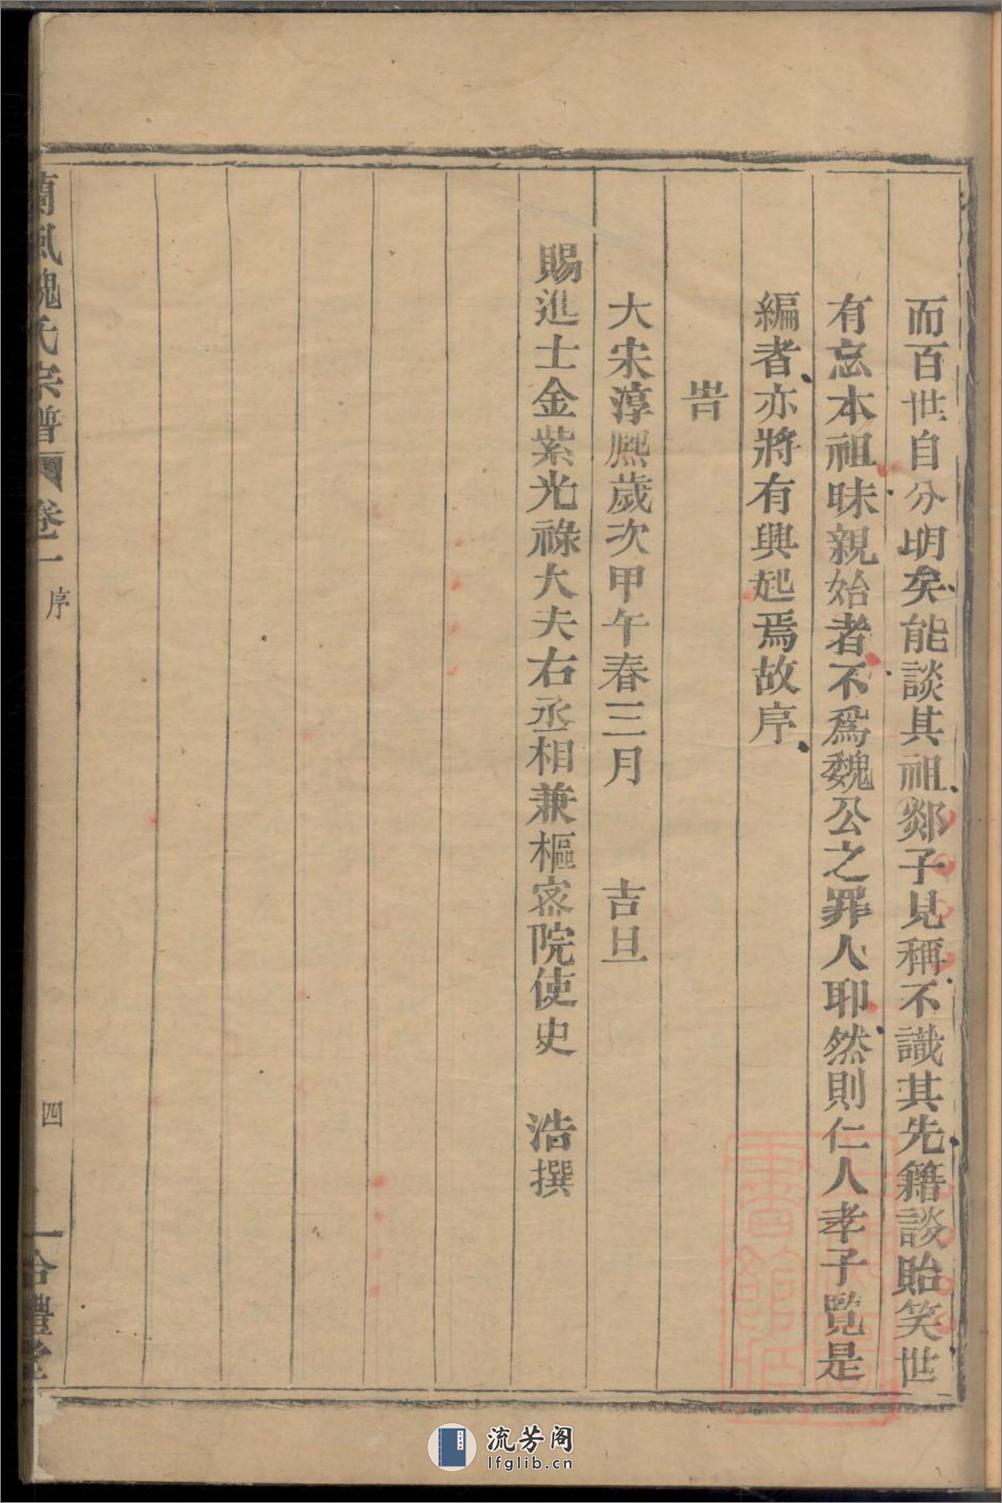 而百世自分明矣能談其祖郯子見稱不識其先籍談貽笑世
有忘本祖昧親始者不爲魏公之罪人耶然則仁人孝子覽是
編者亦將有興起焉故序
旹
大宋淳熈歲次甲午春三月 吉旦
賜進士金紫光祿大夫右丞相兼樞宻院使史 浩撰
蘭風魏氏宗譜 卷一 序 四
流芳阁
lfglib.cn